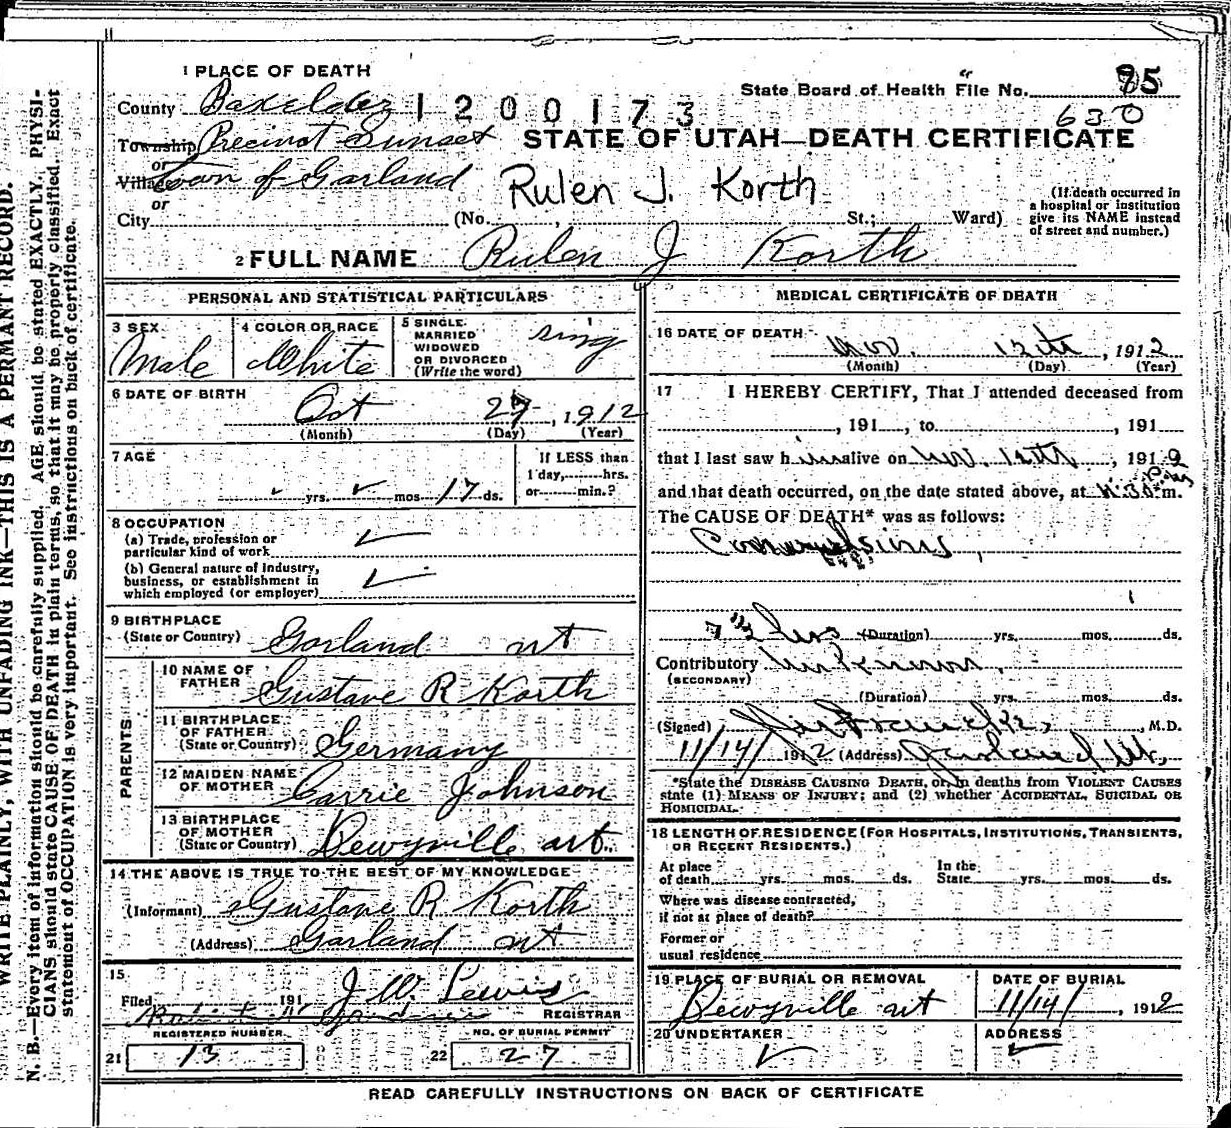 1 PLACE OF DEATH
State Board of Health File No. 95
County Boxelder 1200173
630
Township Precinct Sunset
STATE OF UTAH—DEATH CERTIFICATE
or
Village Town of Garland
Rulen J. Korth
or
City (No. , St.; Ward)
(If death occurred in a hospital or institution give its NAME instead of street and number.)
2 FULL NAME Rulen J Korth
PERSONAL AND STATISTICAL PARTICULARS
3 SEX
Male
4 COLOR OR RACE
White
5 SINGLE
MARRIED
WIDOWED
OR DIVORCED
(Write the word)
sing
6 DATE OF BIRTH
Oct 27, 1912
(Month) (Day) (Year)
7 AGE
yrs. mos. 17 ds.
If LESS than
1 day, hrs.
or min.?
8 OCCUPATION
(a) Trade, profession or
particular kind of work
(b) General nature of industry,
business, or establishment in
which employed (or employer)
9 BIRTHPLACE
(State or Country) Garland ut
PARENTS
10 NAME OF
FATHER Gustave R Korth
11 BIRTHPLACE
OF FATHER
(State or Country) Germany
12 MAIDEN NAME
OF MOTHER Carrie Johnson
13 BIRTHPLACE
OF MOTHER
(State or Country) Dewyville ut.
14 THE ABOVE IS TRUE TO THE BEST OF MY KNOWLEDGE
(Informant) Gustave R Korth
(Address) Garland ut
15
Filed 191 J W Lewis
REGISTRAR
REGISTERED NUMBER
21 13
NO. OF BURIAL PERMIT
22 27
MEDICAL CERTIFICATE OF DEATH
16 DATE OF DEATH
Nov. 12th, 1912
(Month) (Day) (Year)
17 I HEREBY CERTIFY, That I attended deceased from
, 191 , to , 191
that I last saw him alive on Nov. 12th, 1912
and that death occurred, on the date stated above, at m.
The CAUSE OF DEATH* was as follows:
Convulsions
(Duration) yrs. mos. ds.
Contributory Unknown.
(SECONDARY)
(Duration) yrs. mos. ds.
(Signed) , M.D.
11/14/ 1912 (Address) Garland Ut.
*State the DISEASE CAUSING DEATH, or, in deaths from VIOLENT CAUSES
state (1) MEANS OF INJURY; and (2) whether ACCIDENTAL, SUICIDAL OR
HOMICIDAL.
18 LENGTH OF RESIDENCE (FOR HOSPITALS, INSTITUTIONS, TRANSIENTS,
OR RECENT RESIDENTS.)
At place
of death yrs. mos. ds.
In the
State yrs. mos. ds.
Where was disease contracted,
if not at place of death?
Former or
usual residence
19 PLACE OF BURIAL OR REMOVAL
Dewyville ut
DATE OF BURIAL
11/14/, 1912
20 UNDERTAKER
ADDRESS
READ CAREFULLY INSTRUCTIONS ON BACK OF CERTIFICATE
WRITE PLAINLY, WITH UNFADING INK—THIS IS A PERMANT RECORD.
N. B.—Every item of information should be carefully supplied. AGE should be stated EXACTLY. PHYSI-
CIANS should state CAUSE OF DEATH in plain terms, so that it may be properly classified. Exact
statement of OCCUPATION is very important. See instructions on back of certificate.